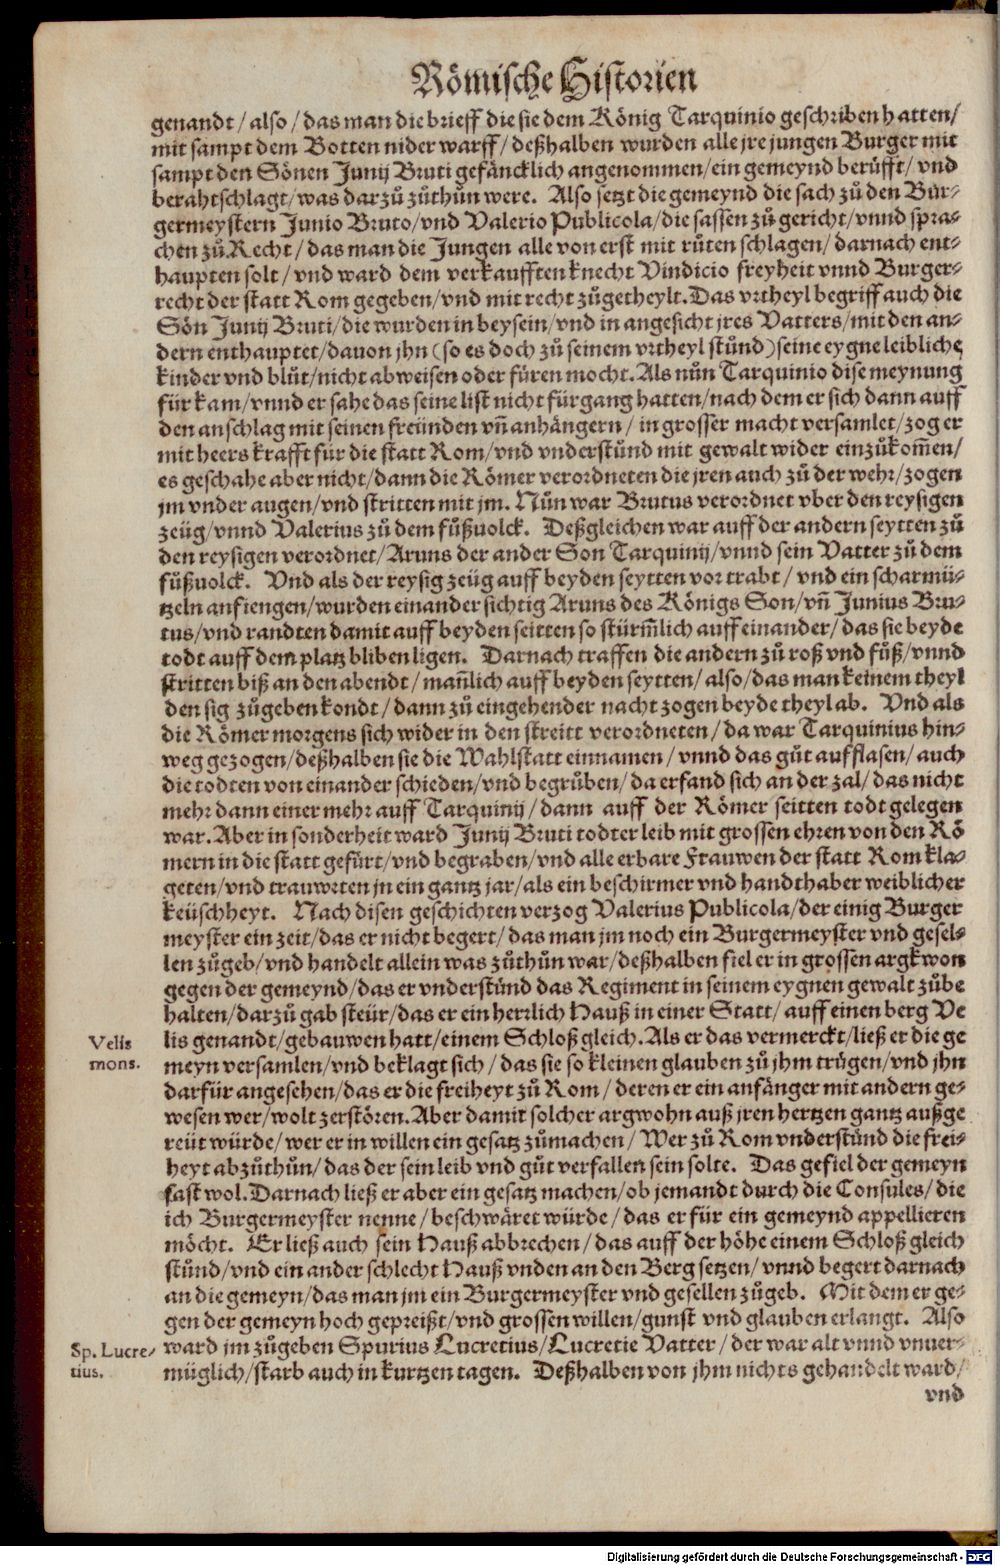 Römische Historien
genandt / also / das man die brieff die sie dem König Tarquinio geschriben hatten /
mit sampt dem Botten nider warff / deßhalben wurden alle jre jungen Burger mit
sampt den Sönen Junij Bruti gefäncklich angenommen / ein gemeynd berüfft / vnd
berahtschlagt / was darzů zůthůn were. Also setzt die gemeynd die sach zů den Bur⸗
germeystern Junio Bruto / vnd Valerio Publicola / die sassen zů gericht / vnnd spra⸗
chen zů Recht / das man die Jungen alle von erst mit růten schlagen / darnach ent⸗
haupten solt / vnd ward dem verkaufften knecht Vindicio freyheit vnnd Burger⸗
recht der statt Rom gegeben / vnd mit recht zůgetheylt. Das vrtheyl begriff auch die
Sön Junij Bruti / die wurden in beysein / vnd in angesicht jres Vatters / mit den an⸗
dern enthauptet / dauon jhn (so es doch zů seinem vrtheyl stůnd) seine eygne leibliche
kinder vnd blůt / nicht abweisen oder füren mocht. Als nůn Tarquinio dise meynung
für kam / vnnd er sahe das seine list nicht fürgang hatten / nach dem er sich dann auff
den anschlag mit seinen freünden vñ anhängern / in grosser macht versamlet / zog er
mit heers krafft für die statt Rom / vnd vnderstůnd mit gewalt wider einzůkom̄en /
es geschahe aber nicht / dann die Römer verordneten die jren auch zů der wehr / zogen
jm vnder augen / vnd stritten mit jm. Nůn war Brutus verordnet vber den reysigen
zeüg / vnnd Valerius zů dem fůßuolck. Deßgleichen war auff der andern seytten zů
den reysigen verordnet / Aruns der ander Son Tarquinij / vnnd sein Vatter zů dem
fůßuolck. Vnd als der reysig zeüg auff beyden seytten vor trabt / vnd ein scharmü⸗
tzeln anfiengen / wurden einander sichtig Aruns des Königs Son / vñ Junius Bru⸗
tus / vnd randten damit auff beyden seitten so stürm̄lich auff einander / das sie beyde
todt auff dem platz bliben ligen. Darnach traffen die andern zů roß vnd fůß / vnnd
stritten biß an den abendt / mañlich auff beyden seytten / also / das man keinem theyl
den sig zůgeben kondt / dann zů eingehender nacht zogen beyde theyl ab. Vnd als
die Römer morgens sich wider in den streitt verordneten / da war Tarquinius hin⸗
weg gezogen / deßhalben sie die Wahlstatt einnamen / vnnd das gůt aufflasen / auch
die todten von einander schieden / vnd begrůben / da erfand sich an der zal / das nicht
mehr dann einer mehr auff Tarquinij / dann auff der Römer seitten todt gelegen
war. Aber in sonderheit ward Junij Bruti todter leib mit grossen ehren von den Rö
mern in die statt gefürt / vnd begraben / vnd alle erbare Frauwen der statt Rom kla⸗
geten / vnd trauwrten jn ein gantz jar / als ein beschirmer vnd handthaber weiblicher
keüschheyt. Nach disen geschichten verzog Valerius Publicola / der einig Burger
meyster ein zeit / das er nicht begert / das man jm noch ein Burgermeyster vnd gesel⸗
len zůgeb / vnd handelt allein was zůthůn war / deßhalben fiel er in grossen argkwon
gegen der gemeynd / das er vnderstůnd das Regiment in seinem eygnen gewalt zůbe
halten / darzů gab steür / das er ein herrlich Hauß in einer Statt / auff einen berg Ve
lis genandt / gebauwen hatt / einem Schloß gleich. Als er das vermerckt / ließ er die ge
meyn versamlen / vnd beklagt sich / das sie so kleinen glauben zů jhm trůgen / vnd jhn
darfür angesehen / das er die freiheyt zů Rom / deren er ein anfänger mit andern ge⸗
wesen wer / wolt zerstören. Aber damit solcher argwohn auß jren hertzen gantz außge
reüt würde / wer er in willen ein gesatz zůmachen / Wer zů Rom vnderstůnd die frei⸗
heyt abzůthůn / das der sein leib vnd gůt verfallen sein solte. Das gefiel der gemeyn
fast wol. Darnach ließ er aber ein gesatz machen / ob jemandt durch die Consules / die
ich Burgermeyster nenne / beschwäret würde / das er für ein gemeynd appellieren
möcht. Er ließ auch sein Hauß abbrechen / das auff der höhe einem Schloß gleich
stůnd / vnd ein ander schlecht Hauß vnden an den Berg setzen / vnnd begert darnach
an die gemeyn / das man jm ein Burgermeyster vnd gesellen zůgeb. Mit dem er ge⸗
gen der gemeyn hoch gepreißt / vnd grossen willen / gunst vnd glauben erlangt. Also
ward jm zůgeben Spurius Lucretius / Lucretie Vatter / der war alt vnnd vnuer⸗
müglich / starb auch in kurtzen tagen. Deßhalben von jhm nichts gehandelt ward /
vnd
Velis
mons.
Sp. Lucre⸗
tius.
Digitalisierung gefördert durch die Deutsche Forschungsgemeinschaft - DFG